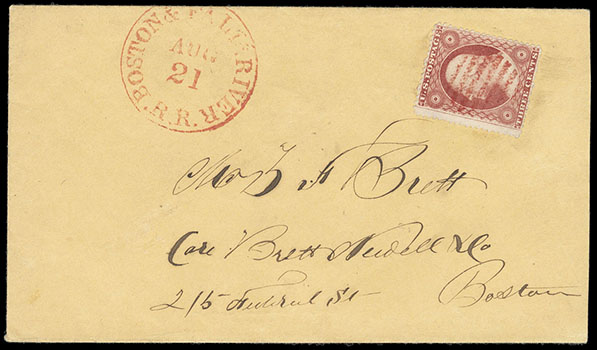 BOSTON & FALL RIVER
AUG
21
R.R.
U.S. POSTAGE
THREE CENTS
Brett
Care Brett Newell & Co
215 Federal St Boston